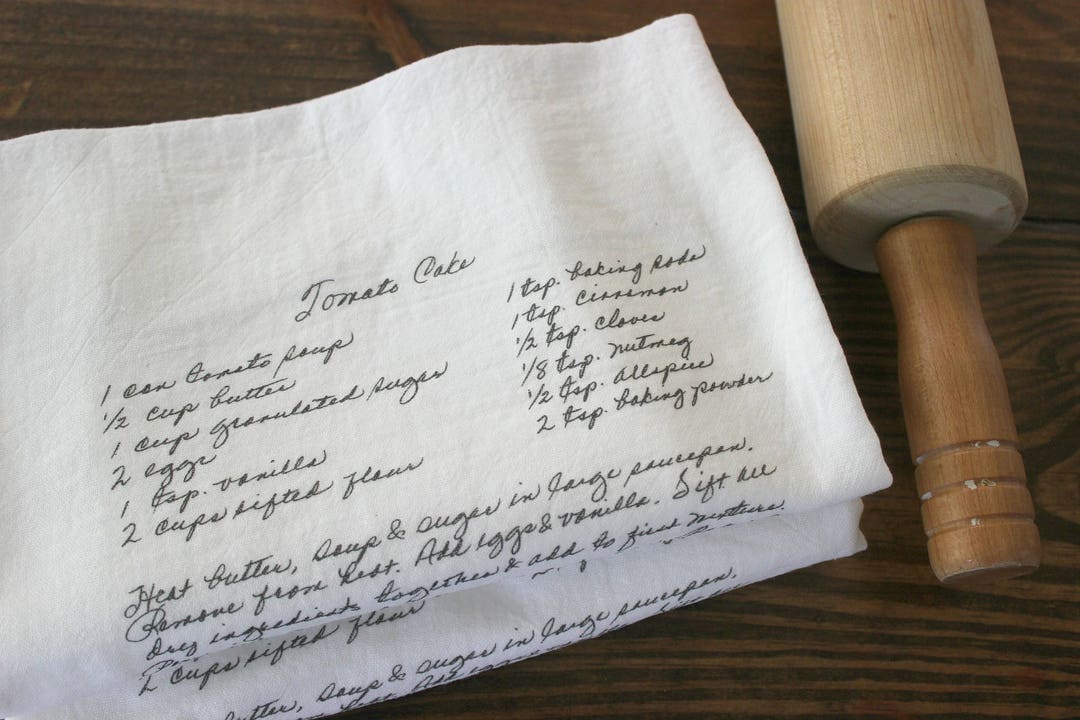 Tomato Cake
1 can tomato soup
1/2 cup butter
1 cup granulated sugar
2 eggs
1 tsp. vanilla
2 cups sifted flour
1 tsp. baking soda
1 tsp. cinnamon
1/2 tsp. cloves
1/8 tsp. nutmeg
1/2 tsp. allspice
2 tsp. baking powder
Heat butter, soup & sugar in large saucepan.
Remove from heat. Add eggs & vanilla. Sift all
dry ingredients together & add to first mixture.
2 cups sifted flour
butter, soup & sugar in large saucepan.